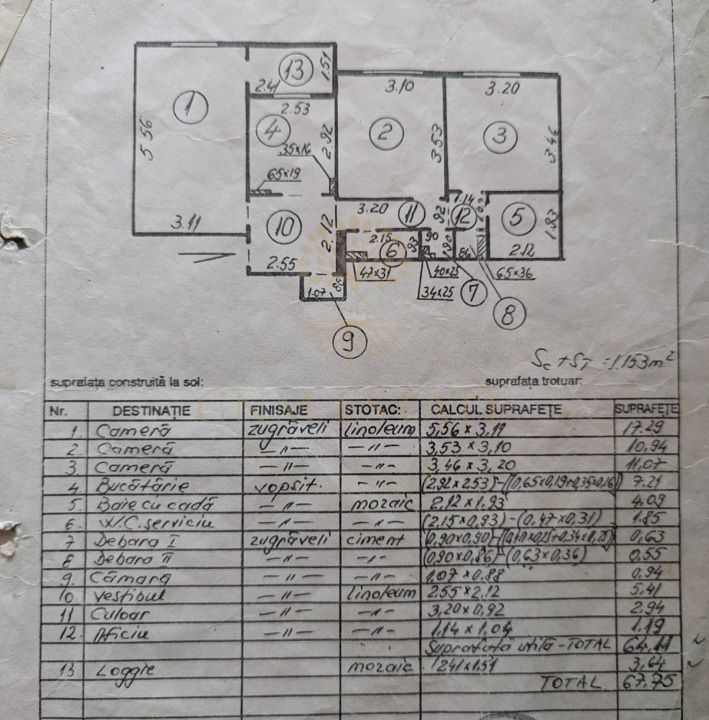 13
1.51
2.41
1
5.56
3.11
2.53
4
2.92
35x16
65x19
3.10
2
3.53
3.20
3
3.46
3.20
11
92
1.14
12
5
1.93
2.12
10
2.12
2.55
2.15
6
93
90
86
47x31
40x25
34x25
65x36
7
8
1.07
88
9
Sc + ST = 1.153m²
suprafața construită la sol:
suprafața trotuar:
Nr. DESTINAȚIE FINISAJE STOTAC: CALCUL SUPRAFEȚE SUPRAFEȚE
1. Cameră zugrăveli linoleum 5,56 x 3,11 17.29
2. Cameră —〃— —〃— 3,53 x 3,10 10,94
3. Cameră —〃— —〃— 3,46 x 3,20 11,07
4. Bucătărie vopsit. —〃— (2,92 x 2.53)-((0,65x0,19+0,35x0,16)) 7.21
5. Baie cu cadă —〃— mozaic 2,12 x 1,93 4.09
6. W.C. serviciu —〃— —〃— (2,15x0,93)-(0,47x0,31) 1.85
7 Debara I zugrăveli ciment (0,90x0,90)-((0,40x0,25+0,34x0,25)) 0,63
8 Debara II —〃— —〃— (0,90x0,86)-(0,63x0,36) 0,55
9. Cămară —〃— —〃— 1,07 x 0,88 0,94
10 Vestibul —〃— linoleum 2.55 x 2.12 5,41
11 Culoar —〃— —〃— 3,20x0,92 2.94
12. Oficiu —〃— —〃— 1.14 x 1,04 1.19
Suprafață utilă - TOTAL 64.11
13 Loggie mozaic 2,41x1.51 3,64
TOTAL 67.75